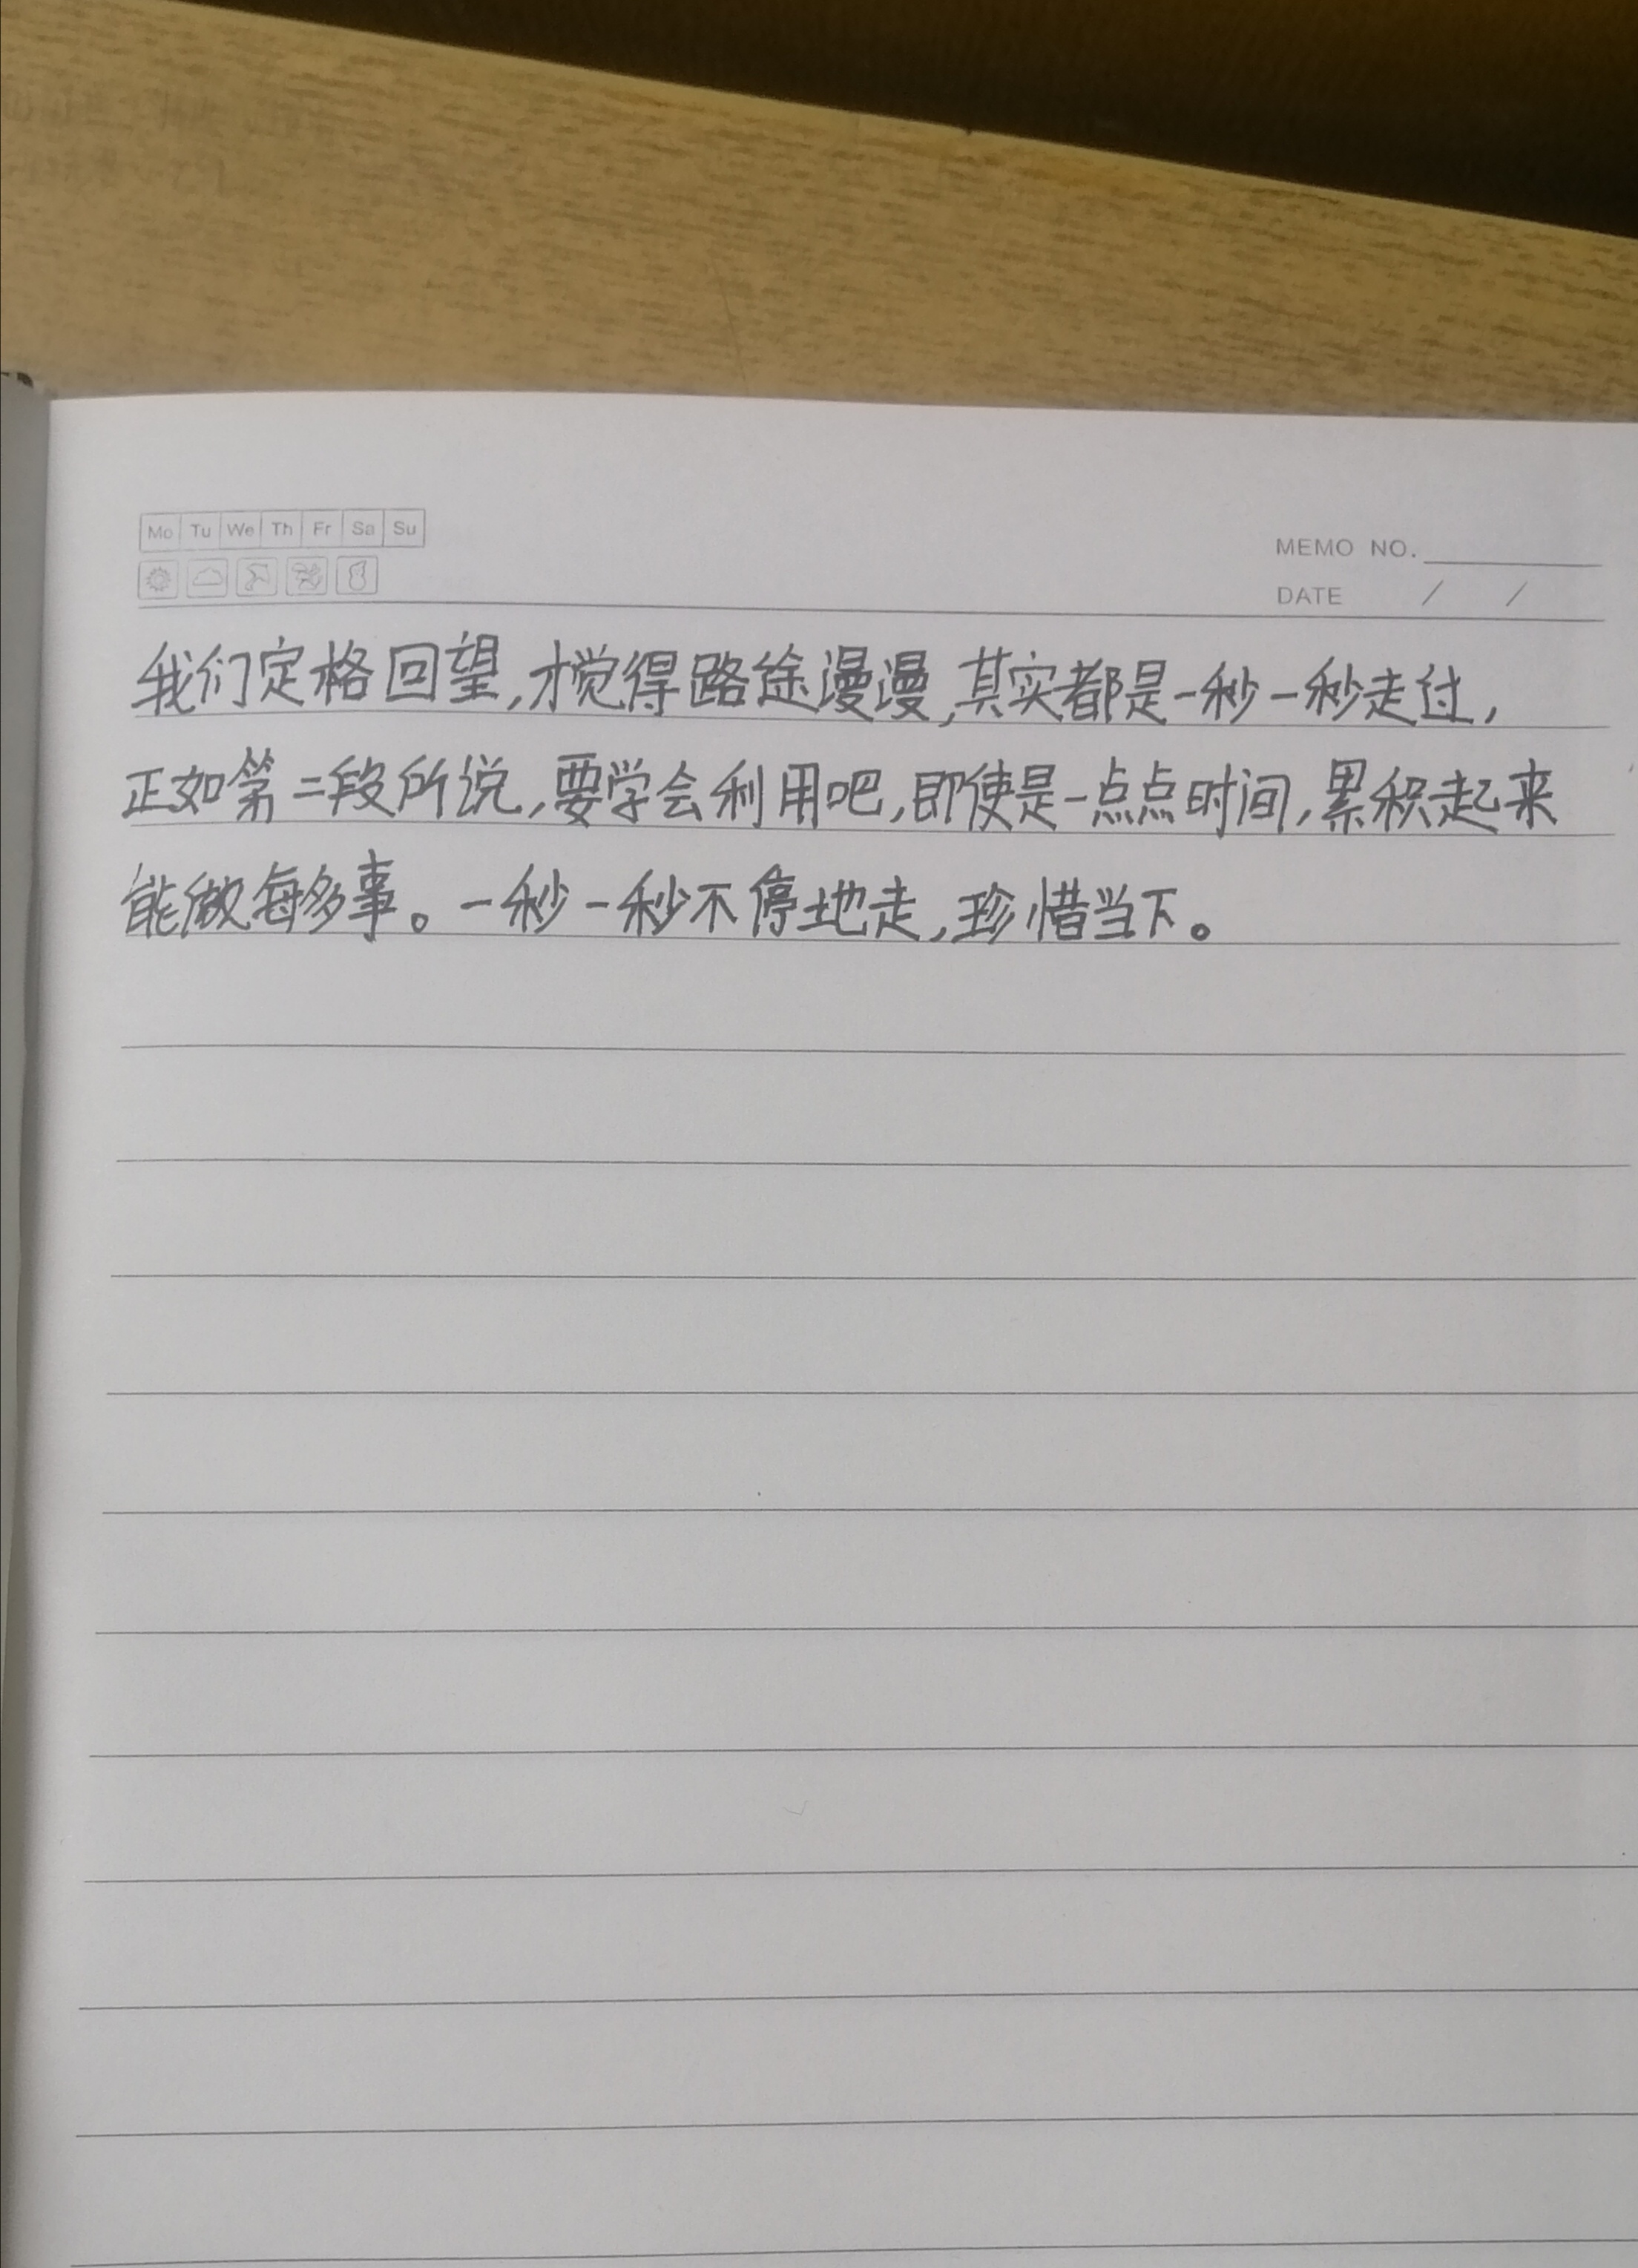 Mo Tu We Th Fr Sa Su
MEMO NO.
DATE / /
我们定格回望,才觉得路途漫漫,其实都是一秒一秒走过,
正如第二段所说,要学会利用吧,即使是一点点时间,累积起来
能做每多事。一秒一秒不停地走,珍惜当下。